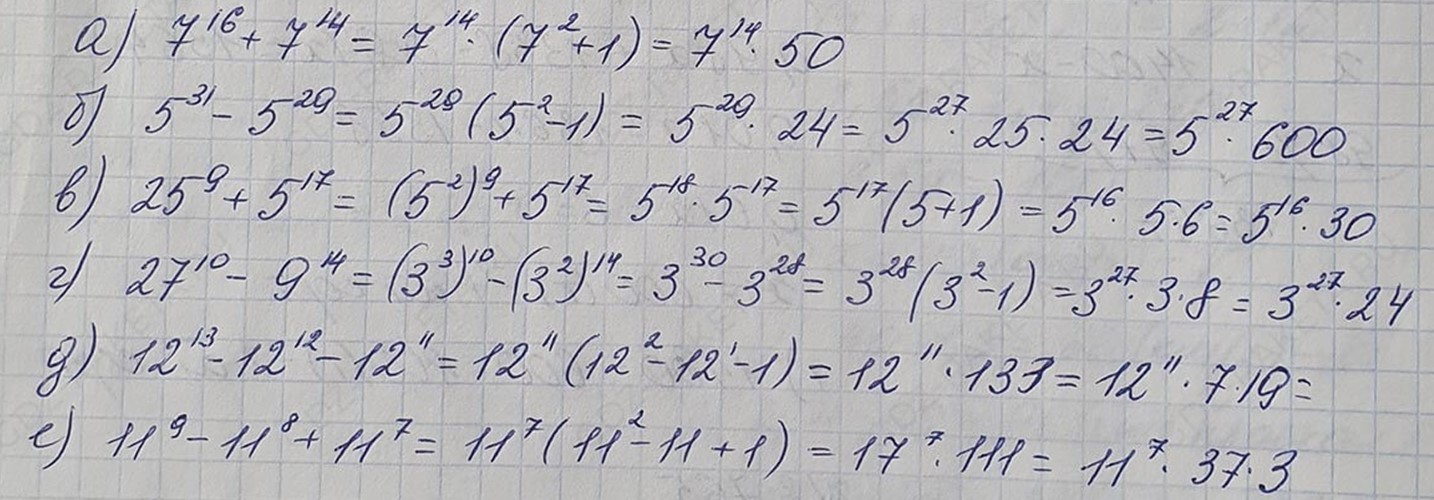 а) 7¹⁶ + 7¹⁴ = 7¹⁴ · (7² + 1) = 7¹⁴ · 50
б) 5³¹ - 5²⁹ = 5²⁹ (5² - 1) = 5²⁹ · 24 = 5²⁷ · 25 · 24 = 5²⁷ · 600
в) 25⁹ + 5¹⁷ = (5²)⁹ + 5¹⁷ = 5¹⁸ · 5¹⁷ = 5¹⁷ (5 + 1) = 5¹⁶ · 5 · 6 = 5¹⁶ · 30
г) 27¹⁰ - 9¹⁴ = (3³)¹⁰ - (3²)¹⁴ = 3³⁰ - 3²⁸ = 3²⁸ (3² - 1) = 3²⁷ · 3 · 8 = 3²⁷ · 24
д) 12¹³ - 12¹² - 12¹¹ = 12¹¹ (12² - 12¹ - 1) = 12¹¹ · 133 = 12¹¹ · 7 · 19 =
е) 11⁹ - 11⁸ + 11⁷ = 11⁷ (11² - 11 + 1) = 17⁷ · 111 = 11⁷ · 37 · 3